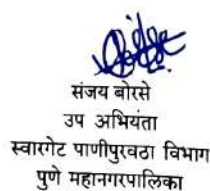 संजय बोरसे
उप अभियंता
स्वारगेट पाणीपुरवठा विभाग
पुणे महानगरपालिका